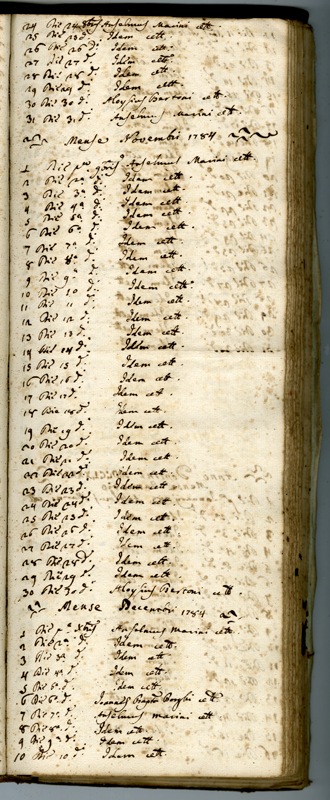 24 Die 24 8bris Anselmus Marini cett.
25 Die 25 d. Idem cett.
26 Die 26 d. Idem cett.
27 Die 27 d. Idem cett.
28 Die 28 d. Idem cett.
29 Die 29 d. Idem cett.
30 Die 30 d. Aloysius Bertoni cett.
31 Die 31 d. Anselmus Marini cett.
Mense Novembri 1784
1 Die pa 9bris Anselmus Marini cett.
2 Die 2a d. Idem cett.
3 Die 3a d. Idem cett.
4 Die 4a d. Idem cett.
5 Die 5a d. Idem cett.
6 Die 6a d. Idem cett.
7 Die 7a d. Idem cett.
8 Die 8a d. Idem cett.
9 Die 9a d. Idem cett.
10 Die 10 d. Idem cett.
11 Die 11 d. Idem cett.
12 Die 12 d. Idem cett.
13 Die 13 d. Idem cett.
14 Die 14 d. Idem cett.
15 Die 15 d. Idem cett.
16 Die 16 d. Idem cett.
17 Die 17 d. Idem cett.
18 Die 18 d. Idem cett.
19 Die 19 d. Idem cett.
20 Die 20 d. Idem cett.
21 Die 21 d. Idem cett.
22 Die 22 d. Idem cett.
23 Die 23 d. Idem cett.
24 Die 24 d. Idem cett.
25 Die 25 d. Idem cett.
26 Die 26 d. Idem cett.
27 Die 27 d. Idem cett.
28 Die 28 d. Idem cett.
29 Die 29 d. Idem cett.
30 Die 30 d. Aloysius Bertoni cett.
Mense Decembri 1784
1 Die pa Xbris Anselmus Marini cett.
2 Die 2a d. Idem cett.
3 Die 3a d. Idem cett.
4 Die 4a d. Idem cett.
5 Die 5a d. Idem cett.
6 Die 6a d. Joannes Bapta Borghi cett.
7 Die 7a d. Anselmus Marini cett.
8 Die 8a d. Idem cett.
9 Die 9a d. Idem cett.
10 Die 10 d. Idem cett.